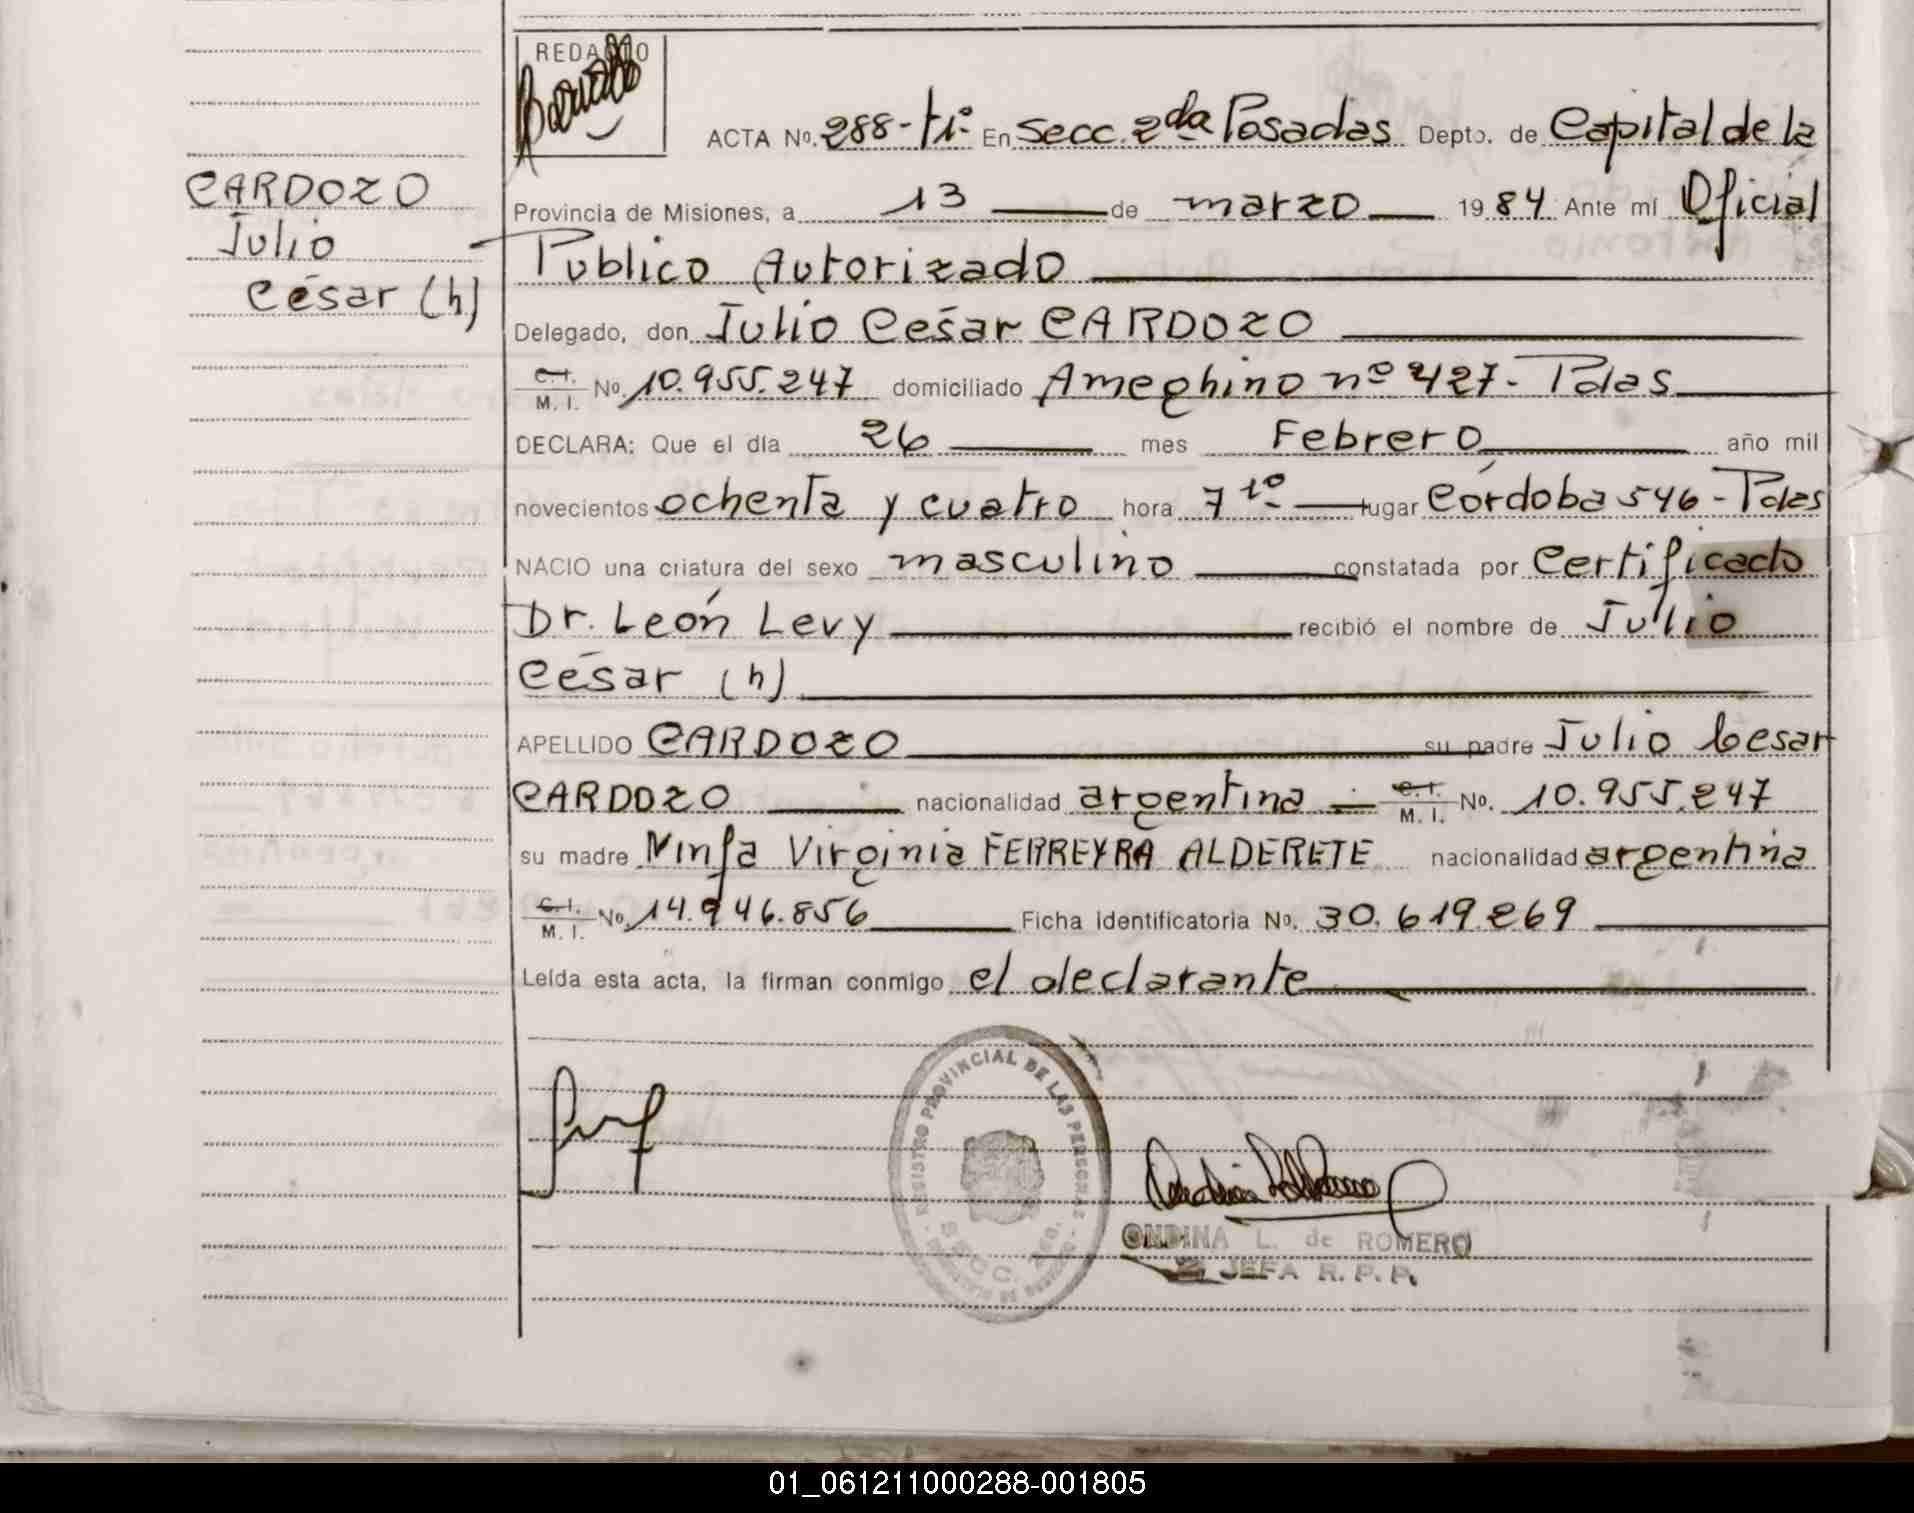 REDACTO
ACTA Nº. 288-tiº En Secc. 2da Posadas Depto. de Capital de la
CARDOZO
Julio
César (h)
Provincia de Misiones, a 13 de marzo 1984 Ante mí Oficial
Publico Autorizado
Delegado, don Julio César CARDOZO
C.I. M.I. No. 10.955.247 domiciliado Ameghino nº 427- Pdas
DECLARA: Que el día 26 mes Febrero año mil
novecientos ochenta y cuatro hora 7 10 lugar Córdoba 546 - Pdas
NACIO una criatura del sexo masculino constatada por Certificado
Dr. León Levy recibió el nombre de Julio
César (h)
APELLIDO CARDOZO su padre Julio Cesar
CARDOZO nacionalidad argentina C.I. M.I. No. 10.955.247
su madre Ninfa Virginia FERREYRA ALDERETE nacionalidad argentina
C.I. M.I. No. 14.946.856 Ficha identificatoria No. 30.619.269
Leída esta acta, la firman conmigo el declarante
REGISTRO PROVINCIAL DE LAS PERSONAS
SECC. 2da.
ONDINA L. de ROMERO
JEFA R. P. P.
01_061211000288-001805